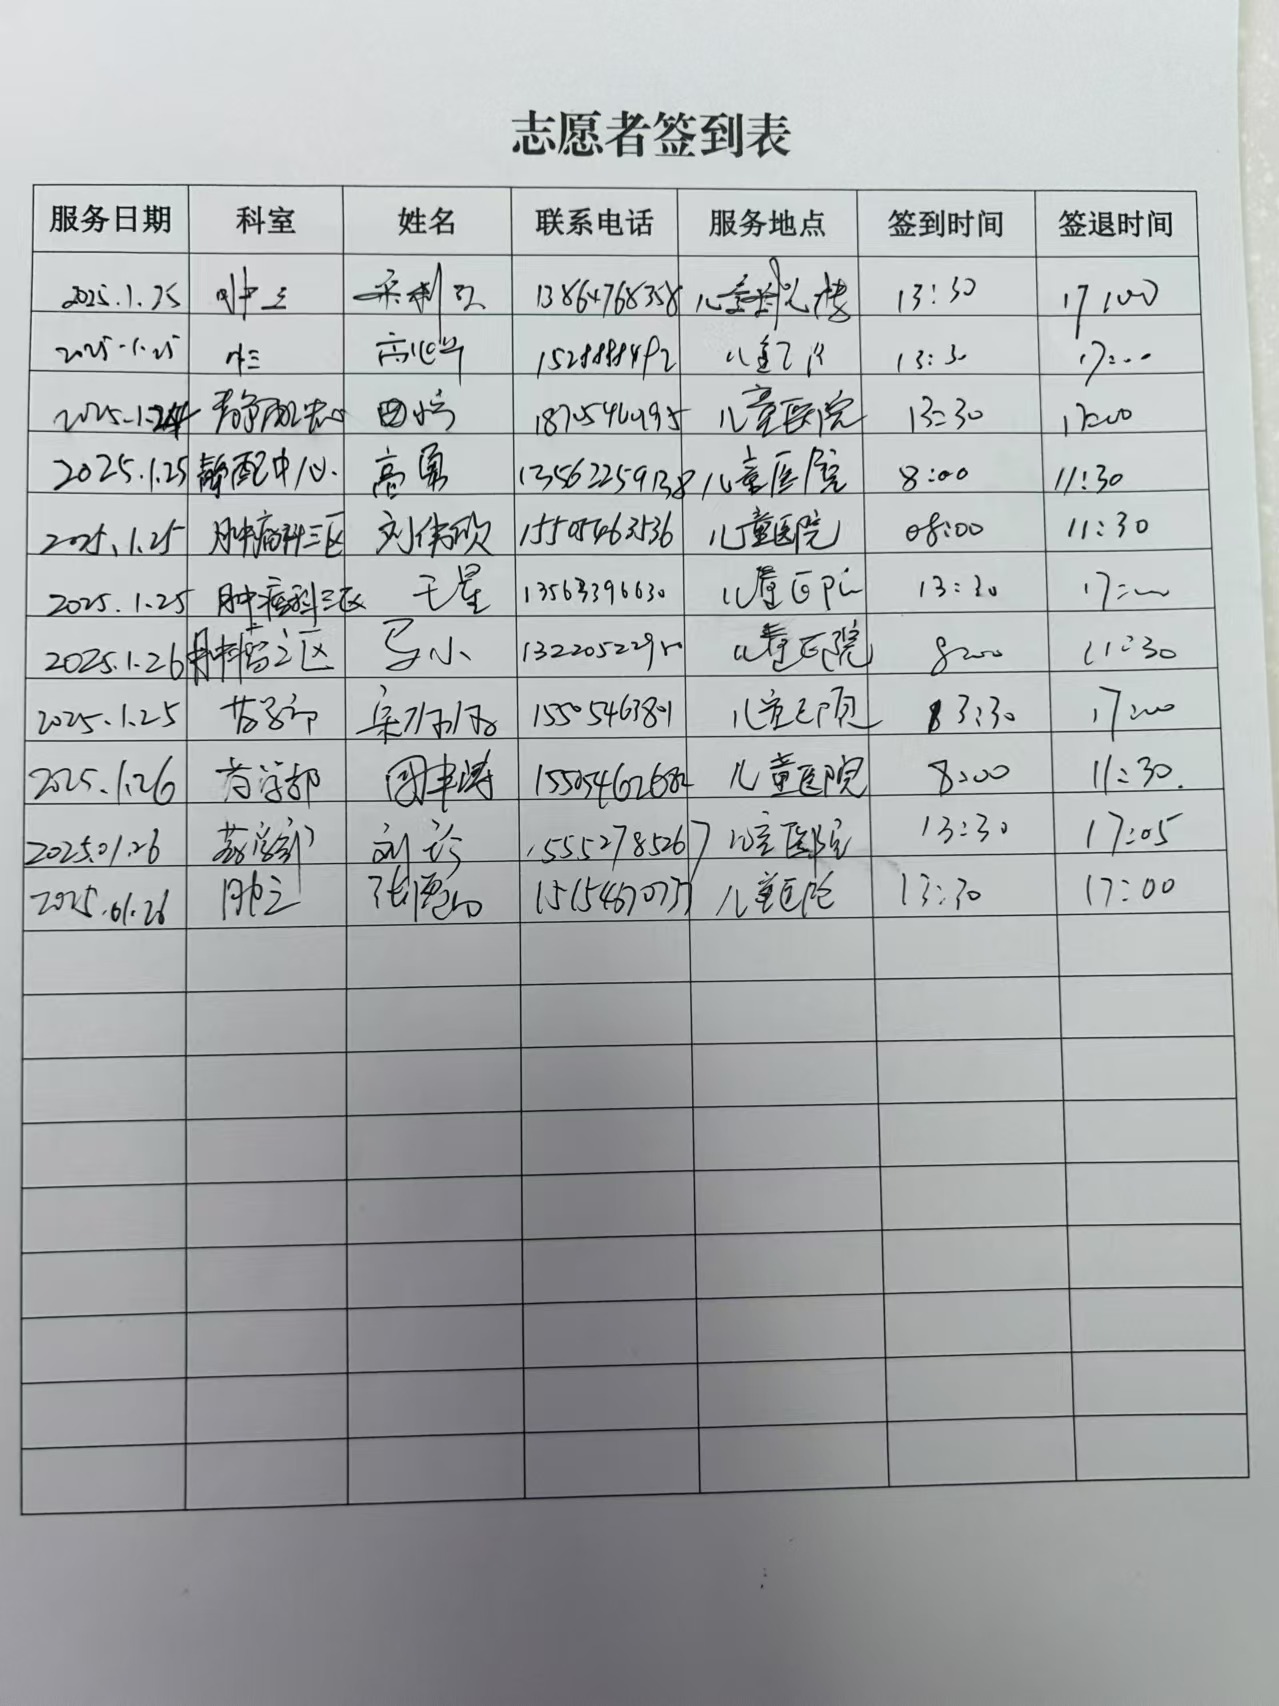 志愿者签到表
服务日期 科室 姓名 联系电话 服务地点 签到时间 签退时间
2025.1.25 13864768358 13:30 17:00
2025.1.25 高 15288884892 13:30 17:00
2025.1.24 静配中心 田 儿童医院 13:30 17:00
2025.1.25 静配中心. 高勇 13562259138 儿童医院 8:00 11:30
2025.1.25 肿瘤科三区 刘伟欣 15505463536 儿童医院 08:00 11:30
2025.1.25 肿瘤科三区 王星 13563396630 儿童医院 13:30 17:00
2025.1.26 马小 儿童医院 8:00 11:30
2025.1.25 药学部 15505463801 儿童医院 13:30 17:00
2025.1.26 药学部 儿童医院 8:00 11:30.
2025.01.26 药学部 刘 15552785267 儿童医院 13:30 17:05
2025.01.26 张 儿童医院 13:30 17:00